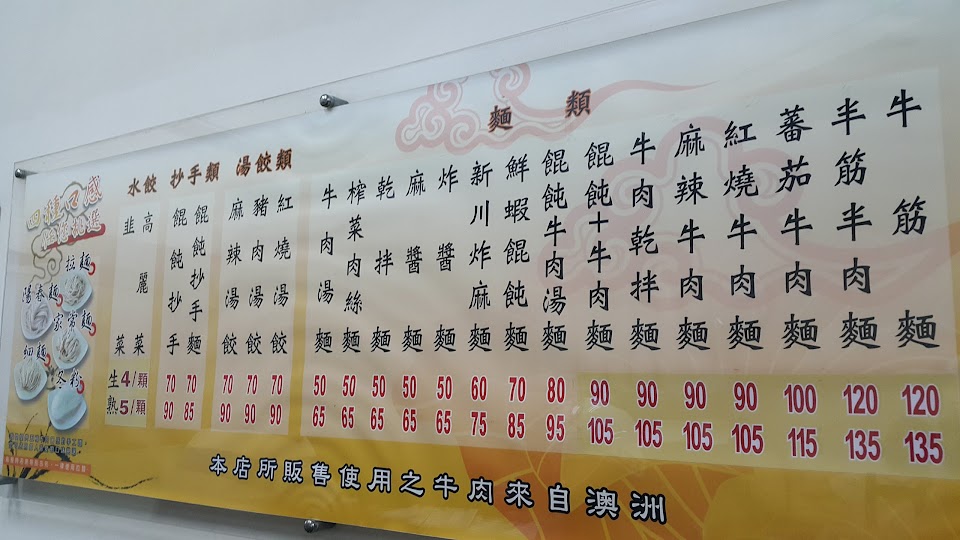 麵類
牛筋麵 120 135
半筋半肉麵 120 135
蕃茄牛肉麵 100 115
紅燒牛肉麵 90 105
麻辣牛肉麵 90 105
牛肉乾拌麵 90 105
餛飩+牛肉麵 90 105
餛飩牛肉湯麵 80 95
鮮蝦餛飩麵 70 85
新川炸麻麵 60 75
炸醬麵 50 65
麻醬麵 50 65
乾拌麵 50 65
榨菜肉絲麵 50 65
牛肉湯麵 50 65
湯餃類
紅燒湯餃 70 90
豬肉湯餃 70 90
麻辣湯餃 70 90
抄手類
餛飩抄手麵 70 85
餛飩抄手 70 90
水餃
高麗菜
韭菜
生4/顆
熟5/顆
四種口感
拉麵
陽春麵
家常麵
細麵
冬粉
本店所販售使用之牛肉來自澳洲